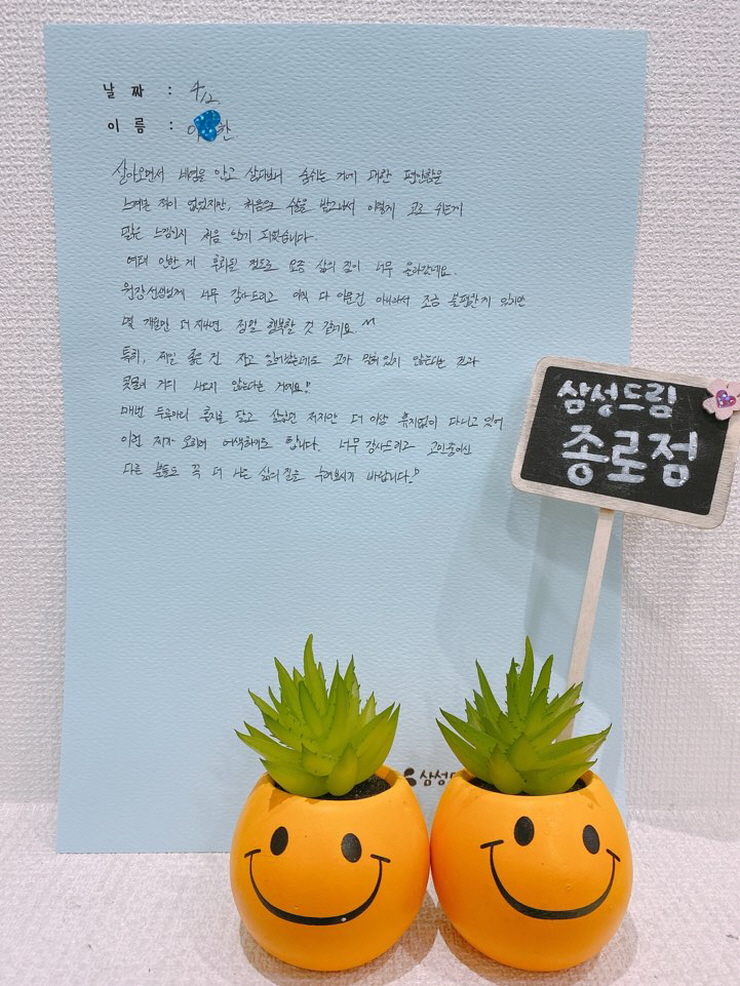 날 짜 : 4/2
이 름 : 이 한
살아오면서 비염을 안고 살다보니 숨쉬는 거에 대한 편안함을
느껴본 적이 없었지만, 처음으로 수술을 받고나서 이렇게 코로 쉬는게
맑은 느낌인지 처음 알게 되었습니다.
여태 안한 게 후회될 정도로 요즘 삶의 질이 너무 올라갔네요.
원장선생님께 너무 감사드리고 아직 다 아문건 아니라서 조금 불편한게 있지만
몇 개월만 더 지나면 정말 행복할 것 같네요.^^
특히, 제일 좋은 건 자고 일어났는데도 코가 막혀 있지 않는다는 것과
콧물이 거의 나오지 않는다는 거예요!!
매번 두루마리 휴지를 달고 살았던 저지만 더 이상 휴지없이 다니고 있어
이런 제가 오히려 어색하기도 합니다. 너무 감사드리고 고민중이신
다른 분들도 꼭 더 나은 삶의 질을 누려보시기 바랍니다.!!
삼성드림
종로점
삼성